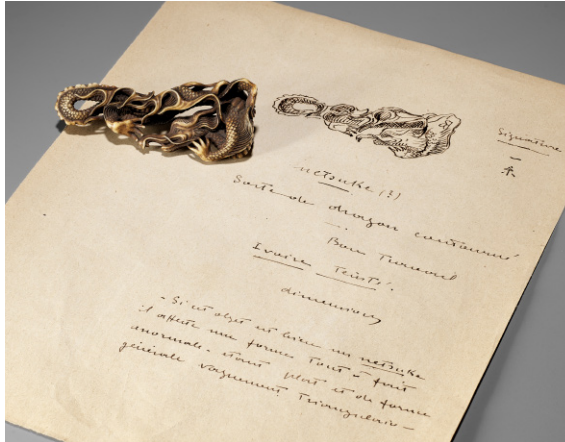 Signature
netsuke (?)
Sorte de dragon contourné
Bon Travail
Ivoire Teinté.
dimensions
- Si cet objet est bien un netsuke
il affecte une forme tout à fait
anormale - étant plat et de forme
générale vaguement Triangulaire -